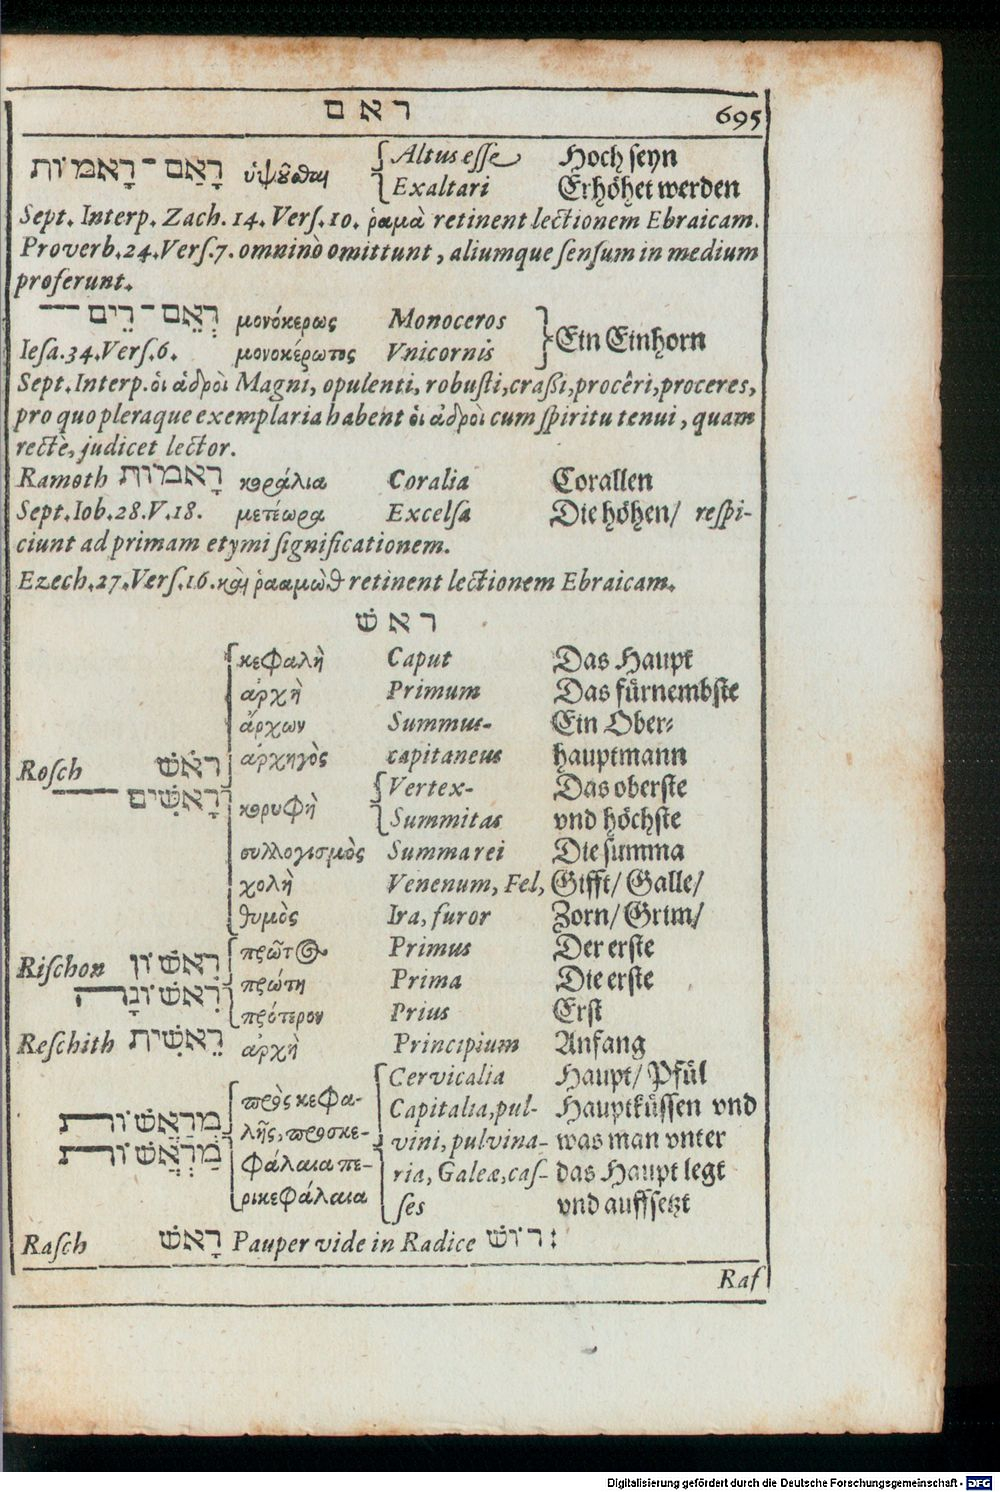 ראם
695
רָאַם־רָאמוֹת ὑψοῦσθαι Altus esse Hoch seyn
Exaltari Erhöhet werden
Sept. Interp. Zach. 14. Vers. 10. ῥαμὰ retinent lectionem Ebraicam.
Proverb. 24. Vers. 7. omninò omittunt, aliumque sensum in medium
proferunt.
רְאֵם־רֵים— μονόκερως Monoceros Ein Einhorn
Iesa. 34. Vers. 6. μονοκέρωτος Vnicornis
Sept. Interp. οἱ ἁδροὶ Magni, opulenti, robusti, crassi, procêri, proceres,
pro quo pleraque exemplaria habent οἱ ἀδροὶ cum spiritu tenui, quam
rectè, judicet lector.
Ramoth רָאמוֹת κοράλια Coralia Corallen
Sept. Iob. 28. V. 18. μετέωρα Excelsa Die höhen/ respi-
ciunt ad primam etymi significationem.
Ezech. 27. Vers. 16. καὶ ῥααμὼθ retinent lectionem Ebraicam.
ראשׁ
κεφαλὴ Caput Das Haupt
ἀρχὴ Primum Das fürnembste
ἄρχων Summus- Ein Ober-
Rosch רֹאשׁ ἀρχηγὸς capitaneus hauptmann
רָאשִׁים— κορυφὴ Vertex- Das oberste
Summitas vnd höchste
συλλογισμὸς Summa rei Die summa
χολὴ Venenum, Fel, Gifft/ Galle/
θυμὸς Ira, furor Zorn/ Grim/
Rischon רִאשׁוֹן πρῶτος Primus Der erste
רִאשׁוֹנָה πρώτη Prima Die erste
πρότερον Prius Erst
Reschith רֵאשִׁית ἀρχὴ Principium Anfang
Cervicalia Haupt/ Pfül
מְרַאֲשׁוֹת πρὸς κεφα- Capitalia, pul- Hauptküssen vnd
λῆς, προσκε- vini, pulvina- was man vnter
מַרְאֲשׁוֹת φάλαια πε- ria, Galeæ, cas- das Haupt legt
ρικεφάλαια ses vnd auffsetzt
Rasch רָאשׁ Pauper vide in Radice רוּשׁ:
Ras
Digitalisierung gefördert durch die Deutsche Forschungsgemeinschaft - DFG